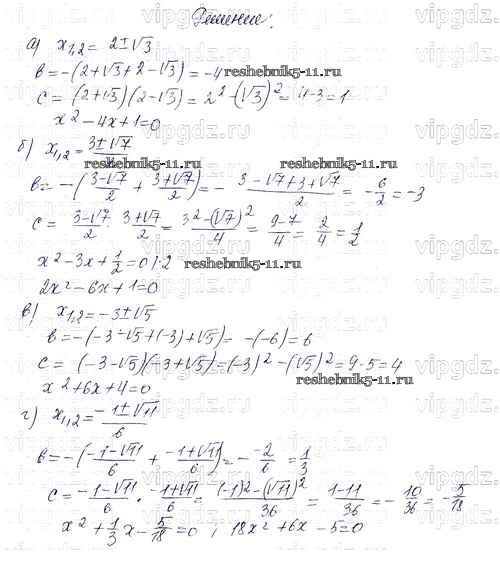 Решение:
а) x₁,₂ = 2±√3
в = -(2+√3+2-√3) = -4
reshebnik5-11.ru
c = (2+√3)(2-√3) = 2² - (√3)² = 4-3=1
x² - 4x + 1 = 0
б) x₁,₂ = (3±√7)/2
reshebnik5-11.ru reshebnik5-11.ru
в = -((3-√7)/2 + (3+√7)/2) = - (3-√7+3+√7)/2 = -6/2 = -3
c = (3-√7)/2 · (3+√7)/2 = (3²-(√7)²)/4 = (9-7)/4 = 2/4 = 1/2
x² - 3x + 1/2 = 0 | · 2
reshebnik5-11.ru
2x² - 6x + 1 = 0
в) x₁,₂ = -3±√5
в = -(-3-√5+(-3)+√5) = -(-6) = 6
c = (-3-√5)(-3+√5) = (-3)² - (√5)² = 9-5 = 4
reshebnik5-11.ru
x² + 6x + 4 = 0
г) x₁,₂ = (-1±√11)/6
в = -((-1-√11)/6 + (-1+√11)/6) = - -2/6 = 1/3
c = (-1-√11)/6 · (-1+√11)/6 = ((-1)²-(√11)²)/36 = (1-11)/36 = -10/36 = -5/18
x² + 1/3 x - 5/18 = 0 ; 18x² + 6x - 5 = 0
vipgdz.ru